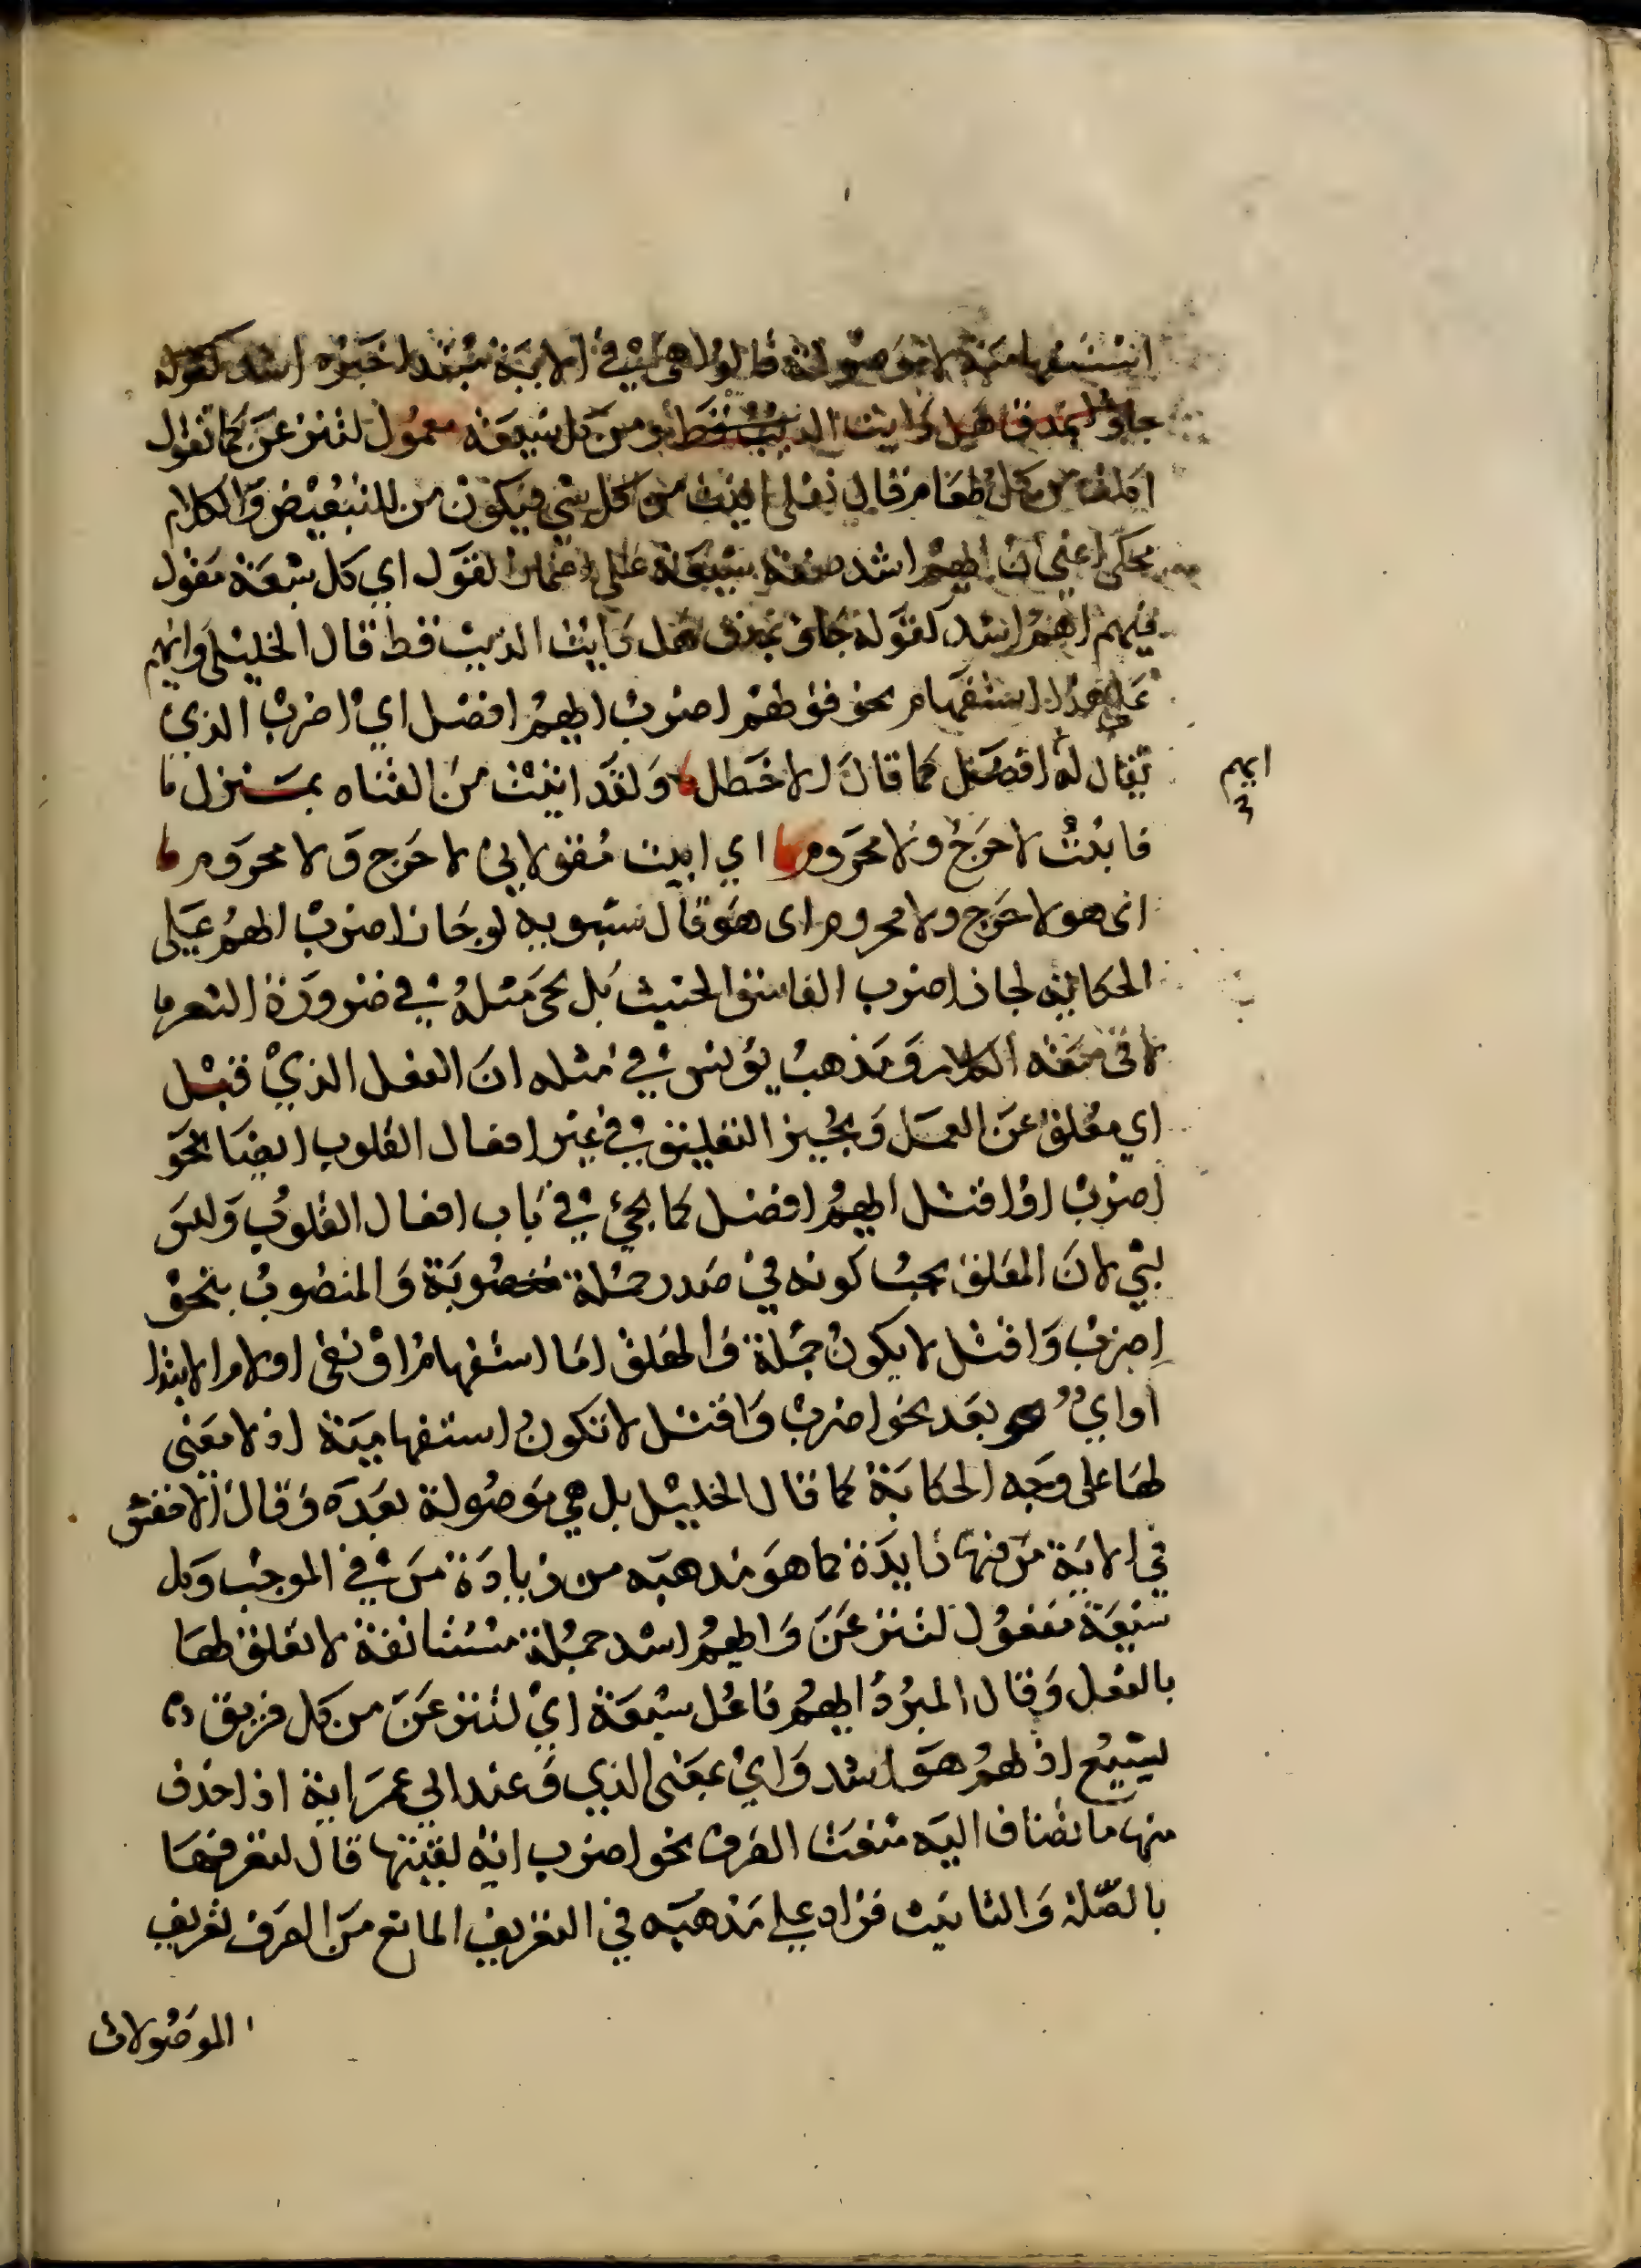 استفهامية لا موصولة قالوا هي في الاية مبتدا خبره اشد كقوله
جاؤا بمذق هل رايت الذيب قط ومن كل شيعة معمول لننزعن كما تقول
اكلت من كل طعام قال تعلى اوتيت من كل شي فيكون من للتبعيض والكلام
محكى اعني ان ايهم اشد صفة شيعة على اضمار القول اي كل شيعة مقول
فيهم ايهم اشد كقوله جاؤ بمذق هل رايت الذيب قط قال الخليل وايهم
على هذا استفهام نحو قولهم اضرب ايهم افضل اي اضرب الذي
يقال له افضل كما قال الاخطل ولقد ابيت من الفتاه بمنزل
فابيت لا حرج ولا محروم اي ابيت مقولا في لا حرج ولا محروم
اى هو لا حرج ولا محروم اى هو قال سيبويه لو جاز اضرب ايهم على
الحكاية لجاز اضرب الفاسق الخبيث بل يجى مثله في ضرورة الشعر
لا في سعة الكلام ومذهب يونس في مثله ان الفعل الذي قبل
اي معلق عن العمل ويجيز التعليق في غير افعال القلوب ايضا نحو
اضرب او اقتل ايهم افضل كما يجئ في باب افعال القلوب وليس
بشي لان المعلق يجب كونه في صدر جملة منصوبة والمنصوب بنحو
اضرب واقتل لا يكون جملة والمعلق اما استفهام او نفى او لام الابتدا
او اي بعد نحو اضرب واقتل لا تكون استفهامية اذ لا معنى
لها على وجه الحكاية كما قال الخليل بل هي موصولة بعده وقال الاخفش
في الاية من فيها زايدة كما هو مذهبه من زيادة من في الموجب وكل
شيعة مفعول لننزعن وايهم اشد جملة مستانفة لا تعلق لها
بالفعل وقال المبرد ايهم فاعل شيعة اي لننزعن من كل فريق
يشيع ايهم هو اشد واي بمعنى الذي وعند ابي عمر اية اذا حذف
منها ما تضاف اليه منعت الصرف نحو اضرب اية لقيتها قال لتعرفها
بالصلة والتانيث فزاد على مذهبه في التعريف المانع من الصرف تعريف
الموصولات
ايهم